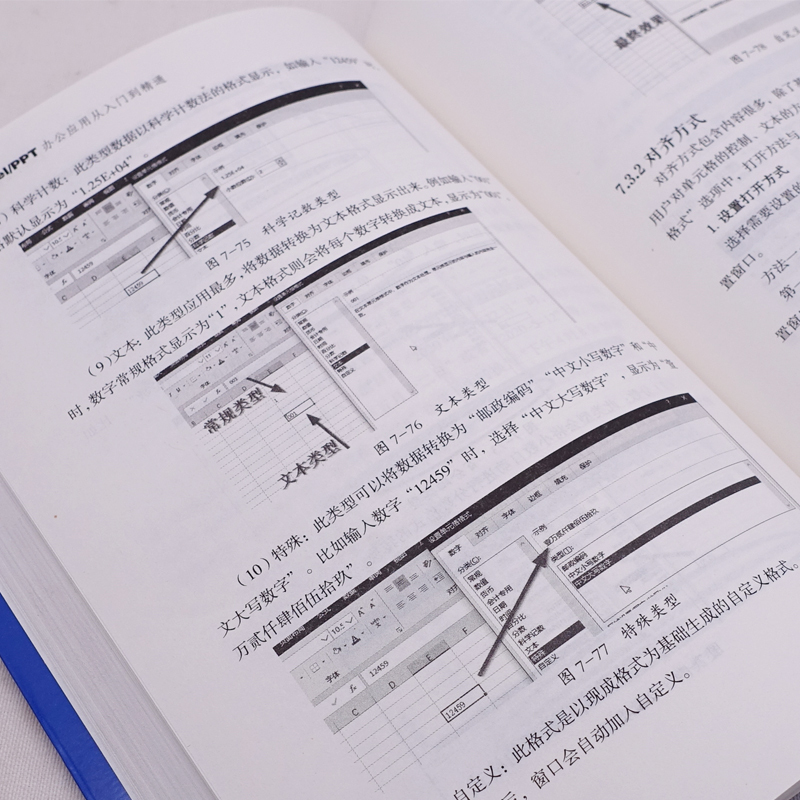 el/PPT 办公应用从入门到精通
）科学计数：此类型数据以科学计数法的格式显示，如输入“12459”时
默认显示为“1.25E+04”。
图 7-75 科学记数类型
（9）文本：此类型应用最多，将数据转换为文本格式显示出来，例如输入“001”
时，数字常规格式显示为“1”，文本格式则会将每个数字转换成文本，显示为“001”
常规类型
文本类型
图 7-76 文本类型
（10）特殊：此类型可以将数据转换为“邮政编码”“中文小写数字”和“中
文大写数字”。比如输入数字“12459”时，选择“中文大写数字”，显示为“壹
万贰仟肆佰伍拾玖”。
设置单元格格式
数字 对齐 字体 边框 填充 保护
分类(C):
常规
数值
货币
会计专用
日期
百分比
分数
科学记数
文本
特殊
自定义
示例
壹万贰仟肆佰伍拾玖
类型(T):
邮政编码
中文小写数字
中文大写数字
字体
12459
C D E F
12459
图 7-77 特殊类型
自定义：此格式是以现成格式为基础生成的自定义格式。
示，窗口会自动加入自定义。
最终效果
图 7-78 自定义
7.3.2 对齐方式
对齐方式包含内容很多，除了
用户对单元格的控制、文本的方
格式”选项中，打开方法与
1. 设置打开方式
选择需要设置的
置窗口。
方法一
第一
置窗口